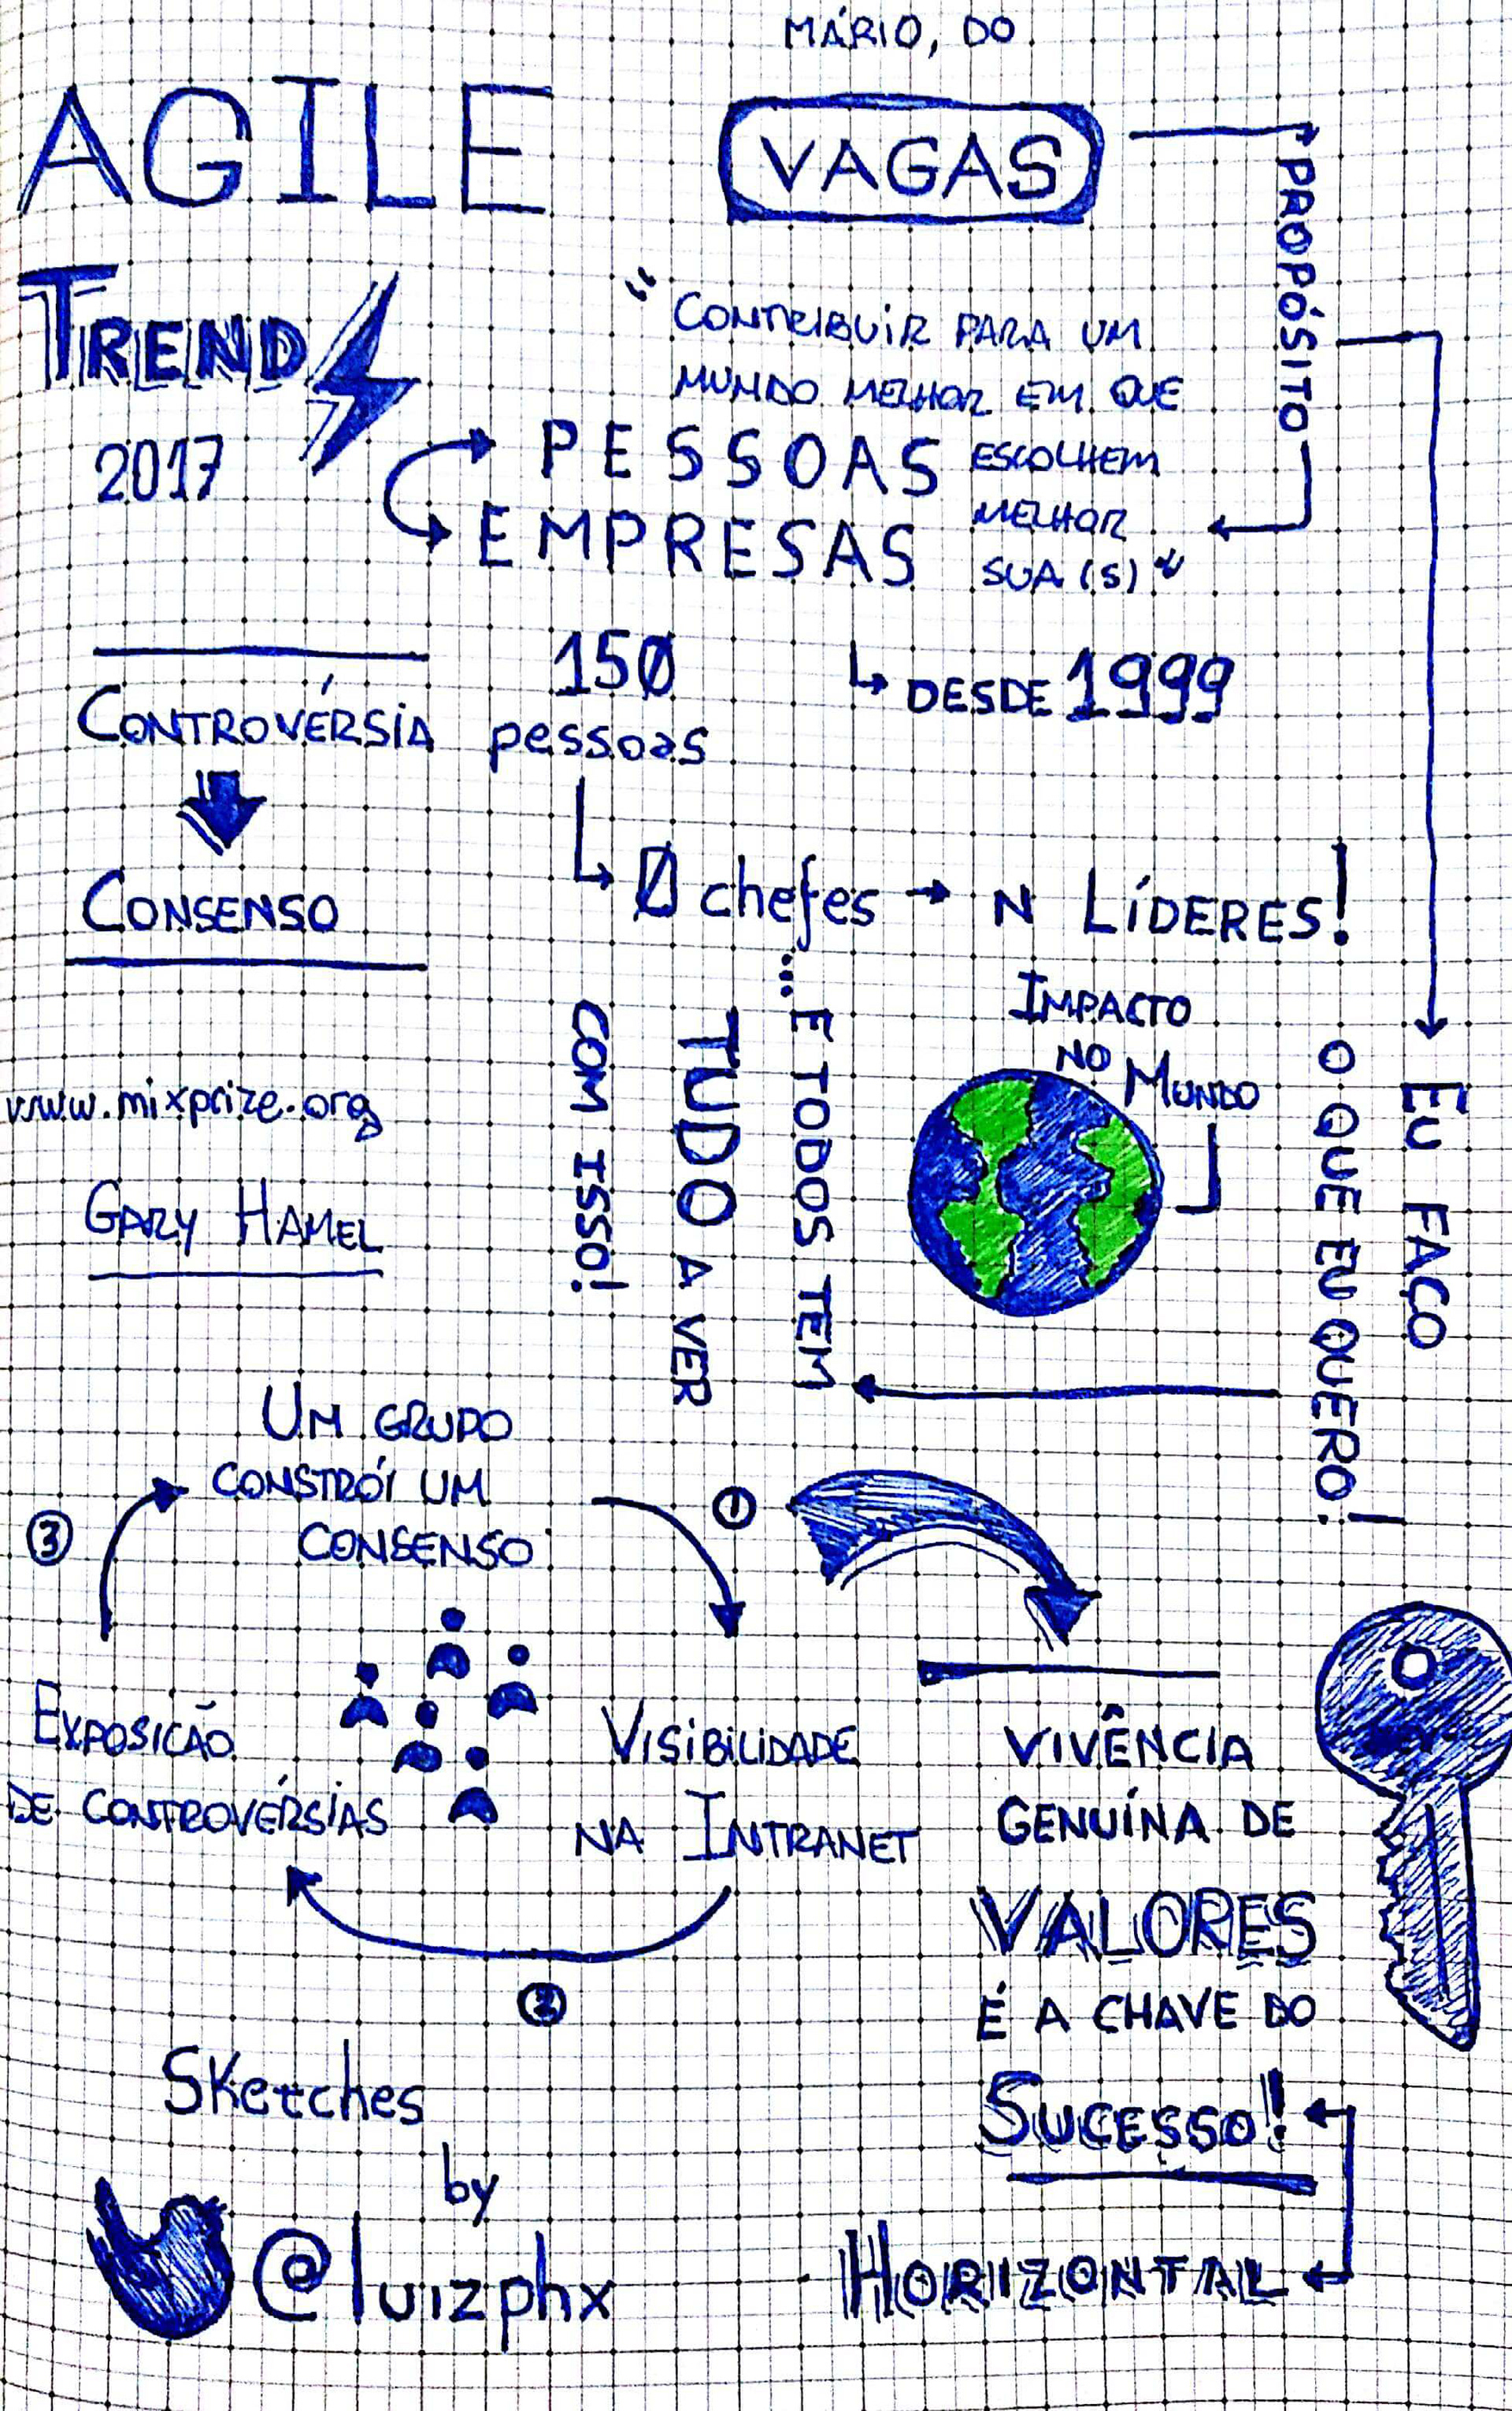 MÁRIO, DO
AGILE
VAGAS
TRENDS
2017
PROPÓSITO
"CONTRIBUIR PARA UM
MUNDO MELHOR EM QUE
PESSOAS ESCOLHEM
MELHOR
EMPRESAS SUA(S)"
150
pessoas
DESDE 1999
CONTROVÉRSIA
CONSENSO
0 chefes → N LÍDERES!
IMPACTO
NO
MUNDO
EU FAÇO
O QUE EU QUERO!
...E TODOS TEM
TUDO A VER
COM ISSO!
www.mixprize.org
GARY HAMEL
UM GRUPO
CONSTRÓI UM
CONSENSO
1
VISIBILIDADE
NA INTRANET
2
EXPOSIÇÃO
DE CONTROVÉRSIAS
3
VIVÊNCIA
GENUÍNA DE
VALORES
É A CHAVE DO
SUCESSO!
HORIZONTAL
Sketches
by
@luizphx